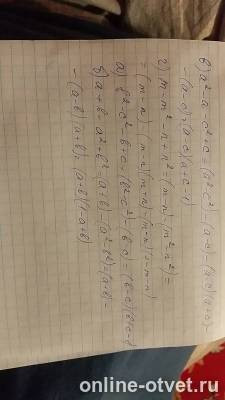 в) a²-a-c²+c=(a²-c²)-(a-c)=(a-c)(a+c)-
-(a-c)=(a-c)(a+c-1)
г) m-m²-n+n²=(m-n)-(m²-n²)=
=(m-n)-(m-n)(m+n)=(m-n)(1-m-n)
а) b²-c²-b+c=(b²-c²)-(b-c)=(b-c)(b+c-1)
б) a+b-a²+b²=(a+b)-(a²-b²)=(a+b)-
-(a-b)(a+b)=(a+b)(1-a+b)
online-otvet.ru